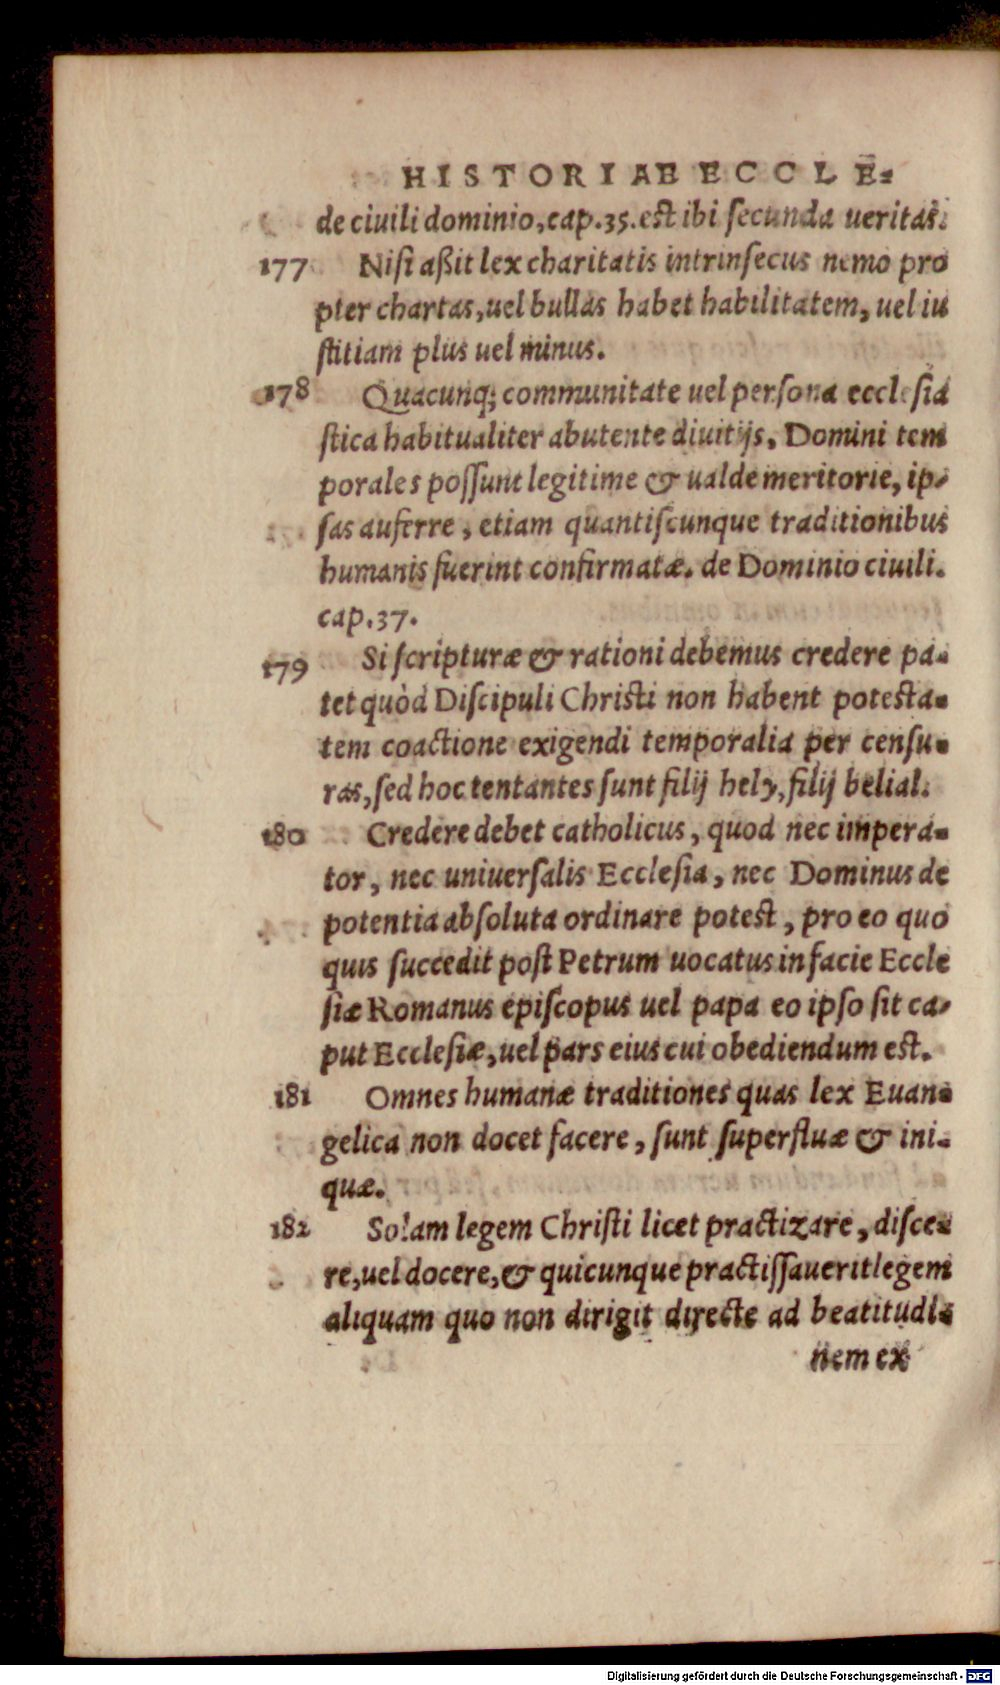 HISTORIAE ECCLE-
de ciuili dominio, cap. 35. est ibi secunda ueritas.
177 Nisi aßit lex charitatis intrinsecus nemo pro
pter chartas, uel bullas habet habilitatem, uel iu
stitiam plus uel minus.
178 Quacunq; communitate uel persona ecclesia
stica habitualiter abutente diuitijs, Domini tem
porales possunt legitime & ualde meritorie, ip-
sas auferre, etiam quantiscunque traditionibus
humanis fuerint confirmatæ. de Dominio ciuili.
cap. 37.
179 Si scripturæ & rationi debemus credere pa-
tet quòd Discipuli Christi non habent potesta-
tem coactione exigendi temporalia per censu-
ras, sed hoc tentantes sunt filij hely, filij belial.
180 Credere debet catholicus, quod nec impera-
tor, nec uniuersalis Ecclesia, nec Dominus de
potentia absoluta ordinare potest, pro eo quo
quis succedit post Petrum uocatus in facie Eccle
siæ Romanus episcopus uel papa eo ipso sit ca-
put Ecclesiæ, uel pars eius cui obediendum est.
181 Omnes humanæ traditiones quas lex Euan-
gelica non docet facere, sunt superfluæ & ini-
quæ.
182 Solam legem Christi licet practizare, disce-
re, uel docere, & quicunque practissauerit legem
aliquam quo non dirigit directe ad beatitudi-
nem ex
Digitalisierung gefördert durch die Deutsche Forschungsgemeinschaft - DFG